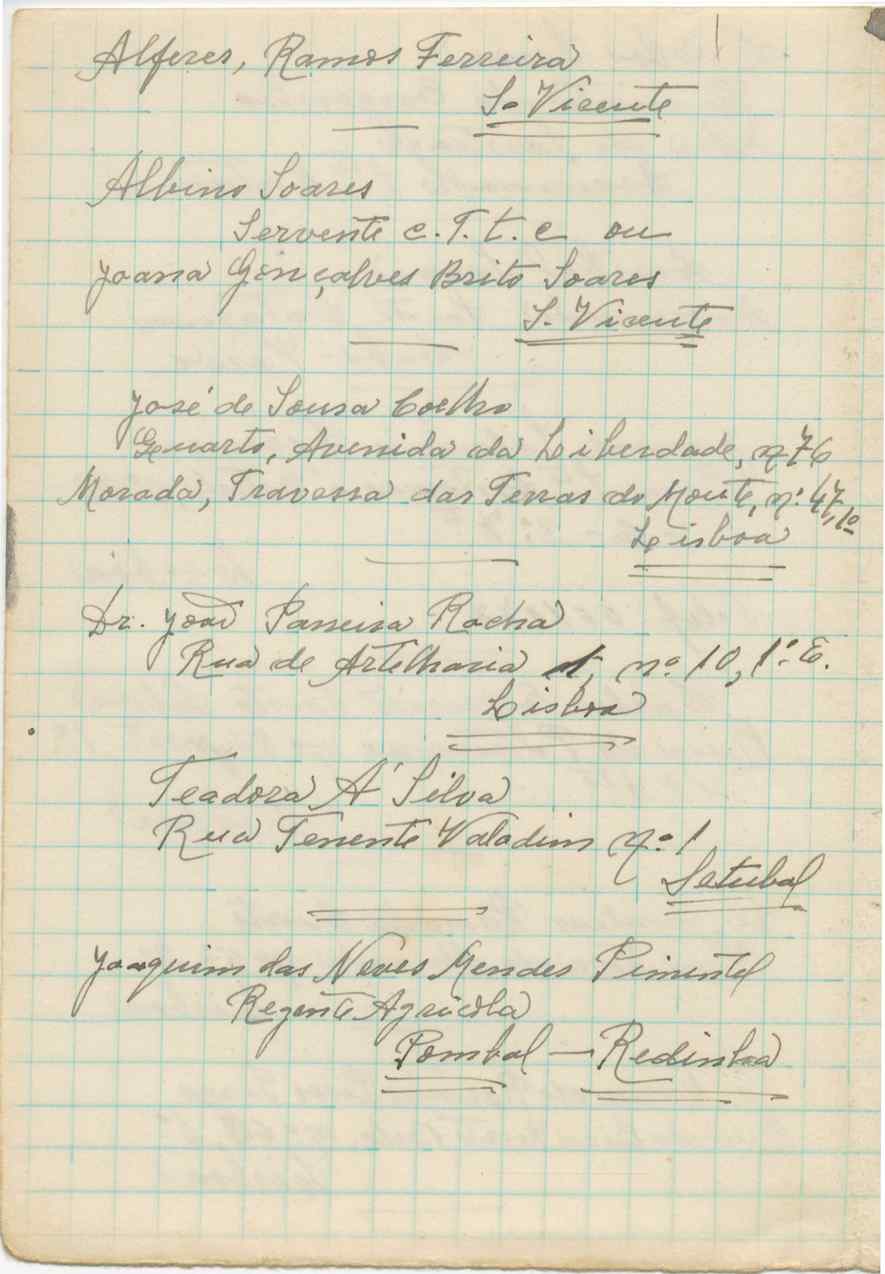 Alferes, Ramos Ferreira
S. Vicente
Albino Soares
Servente c. T. t. e ou
Joana Gonçalves Brito Soares
S. Vicente
José de Sousa Coelho
Quarto, Avenida da Liberdade, nº 76
Morada, Travessa das Terras do Monte, nº 47, 1º
Lisboa
Dr. João Parreira Rocha
Rua de Artelharia 1, nº 10, 1º E.
Lisboa
Teadora A' Silva
Rua Tenente Valadim nº 1
Setubal
Joaquim das Neves Mendes Pimentel
Regente Agricola
Pombal — Redinha